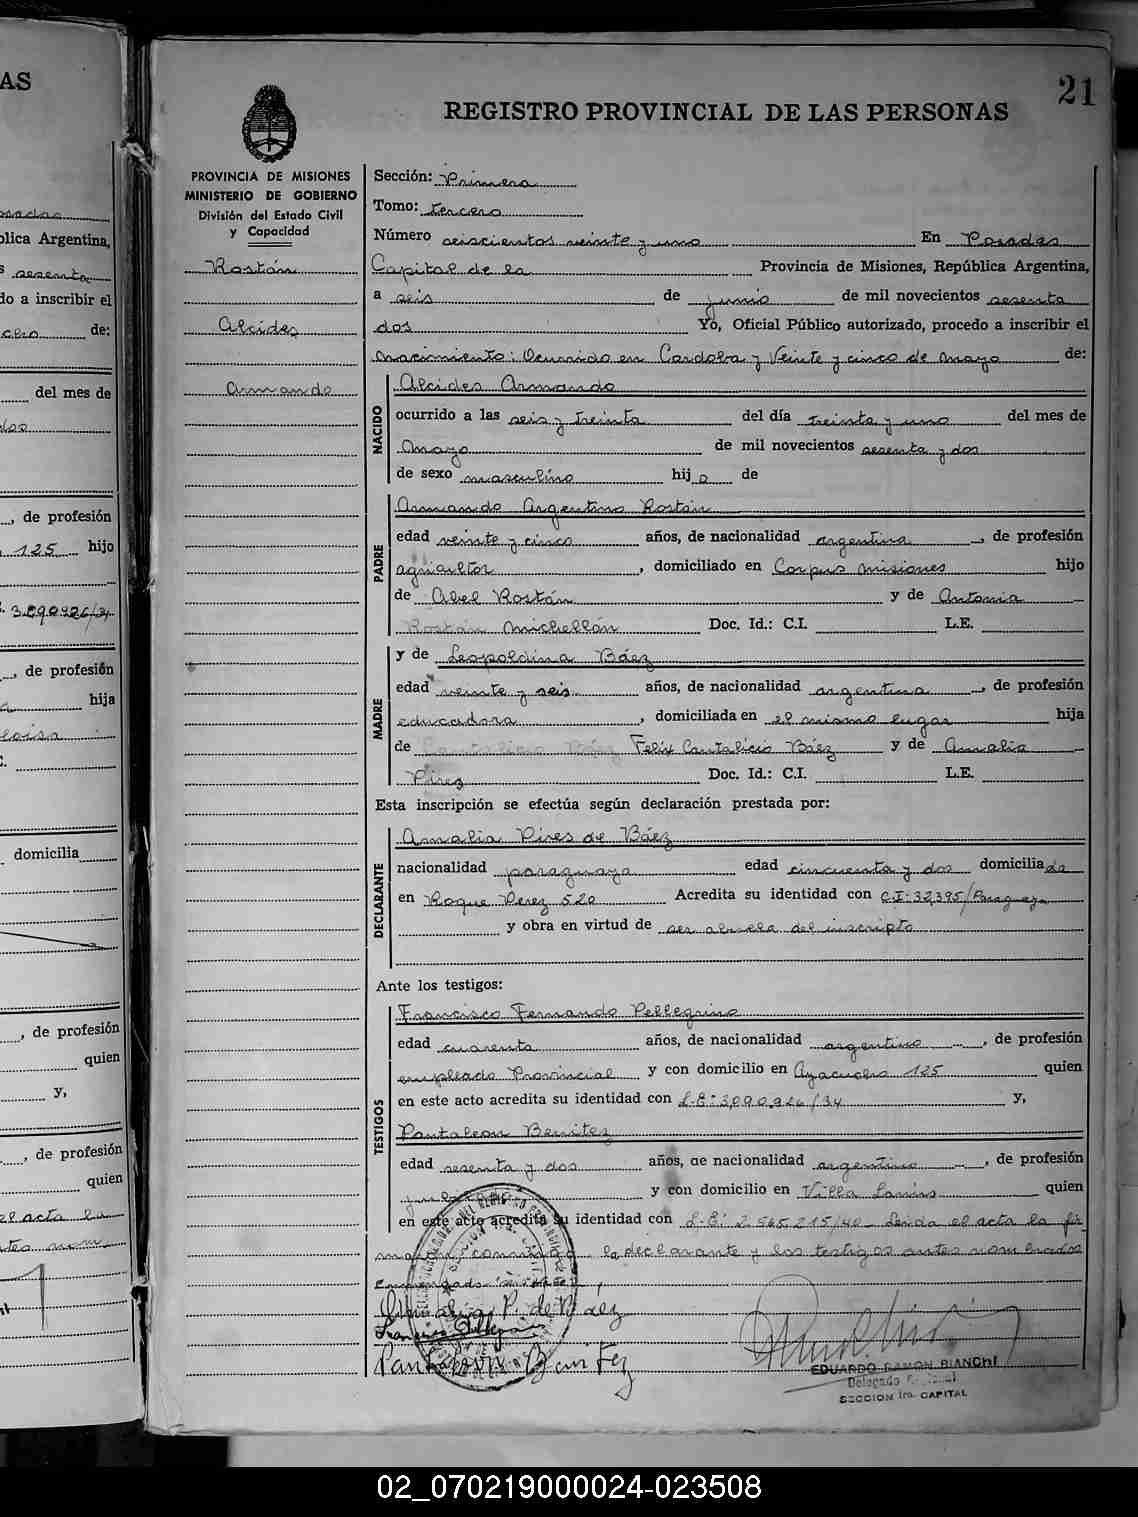 AS
21
REGISTRO PROVINCIAL DE LAS PERSONAS
PROVINCIA DE MISIONES
MINISTERIO DE GOBIERNO
División del Estado Civil
y Capacidad
Rostán
Alcides
Armando
Sección: Primera
Tomo: tercero
Número seiscientos veinte y uno En Posadas
Capital de la Provincia de Misiones, República Argentina,
a seis de junio de mil novecientos sesenta
dos Yo, Oficial Público autorizado, procedo a inscribir el
nacimiento: Ocurrido en Cordoba y Veinte y cinco de mayo de:
NACIDO
Alcides Armando
ocurrido a las seis y treinta del día treinta y uno del mes de
mayo de mil novecientos sesenta y dos
de sexo masculino hij o de
PADRE
Armando Argentino Rostán
edad veinte y cinco años, de nacionalidad argentina, de profesión
agricultor, domiciliado en Corpus Misiones hijo
de Abel Rostán y de Antonia
Rostán Michellón Doc. Id.: C.I. L.E.
MADRE
y de Leopoldina Báez
edad veinte y seis años, de nacionalidad argentina, de profesión
educadora, domiciliada en el mismo lugar hija
de Cantalicio Báez Felix Cantalicio Báez y de Amalia
Pirez Doc. Id.: C.I. L.E.
Esta inscripción se efectúa según declaración prestada por:
DECLARANTE
Amalia Pires de Báez
nacionalidad paraguaya edad cincuenta y dos domiciliada
en Roque Perez 520 Acredita su identidad con C.I: 32,395/Paraguaya
y obra en virtud de ser abuela del inscripto
Ante los testigos:
TESTIGOS
Francisco Fernando Pellegrino
edad cuarenta años, de nacionalidad argentino, de profesión
empleado Provincial y con domicilio en Ayacucho 125 quien
en este acto acredita su identidad con L.E: 3.090.926/34 y,
Pantaleon Benitez
edad sesenta y dos años, de nacionalidad argentino, de profesión
y con domicilio en Villa Lanús quien
en este acto acredita su identidad con L.E: 2.565.215/40 Leida el acta la fir
man conmigo la declarante y los testigos antes nombrados
Amalia P. de Báez
Francisco Pellegrino
Pantaleon Benitez
EDUARDO RAMON BIANCHI
Delegado
SECCION 1ra. CAPITAL
osadas
blica Argentina,
sesenta
do a inscribir el
de:
del mes de
, de profesión
125 hijo
3.090926/34
, de profesión
hija
domicilia
, de profesión
quien
y,
, de profesión
quien
el acta la
02_070219000024-023508